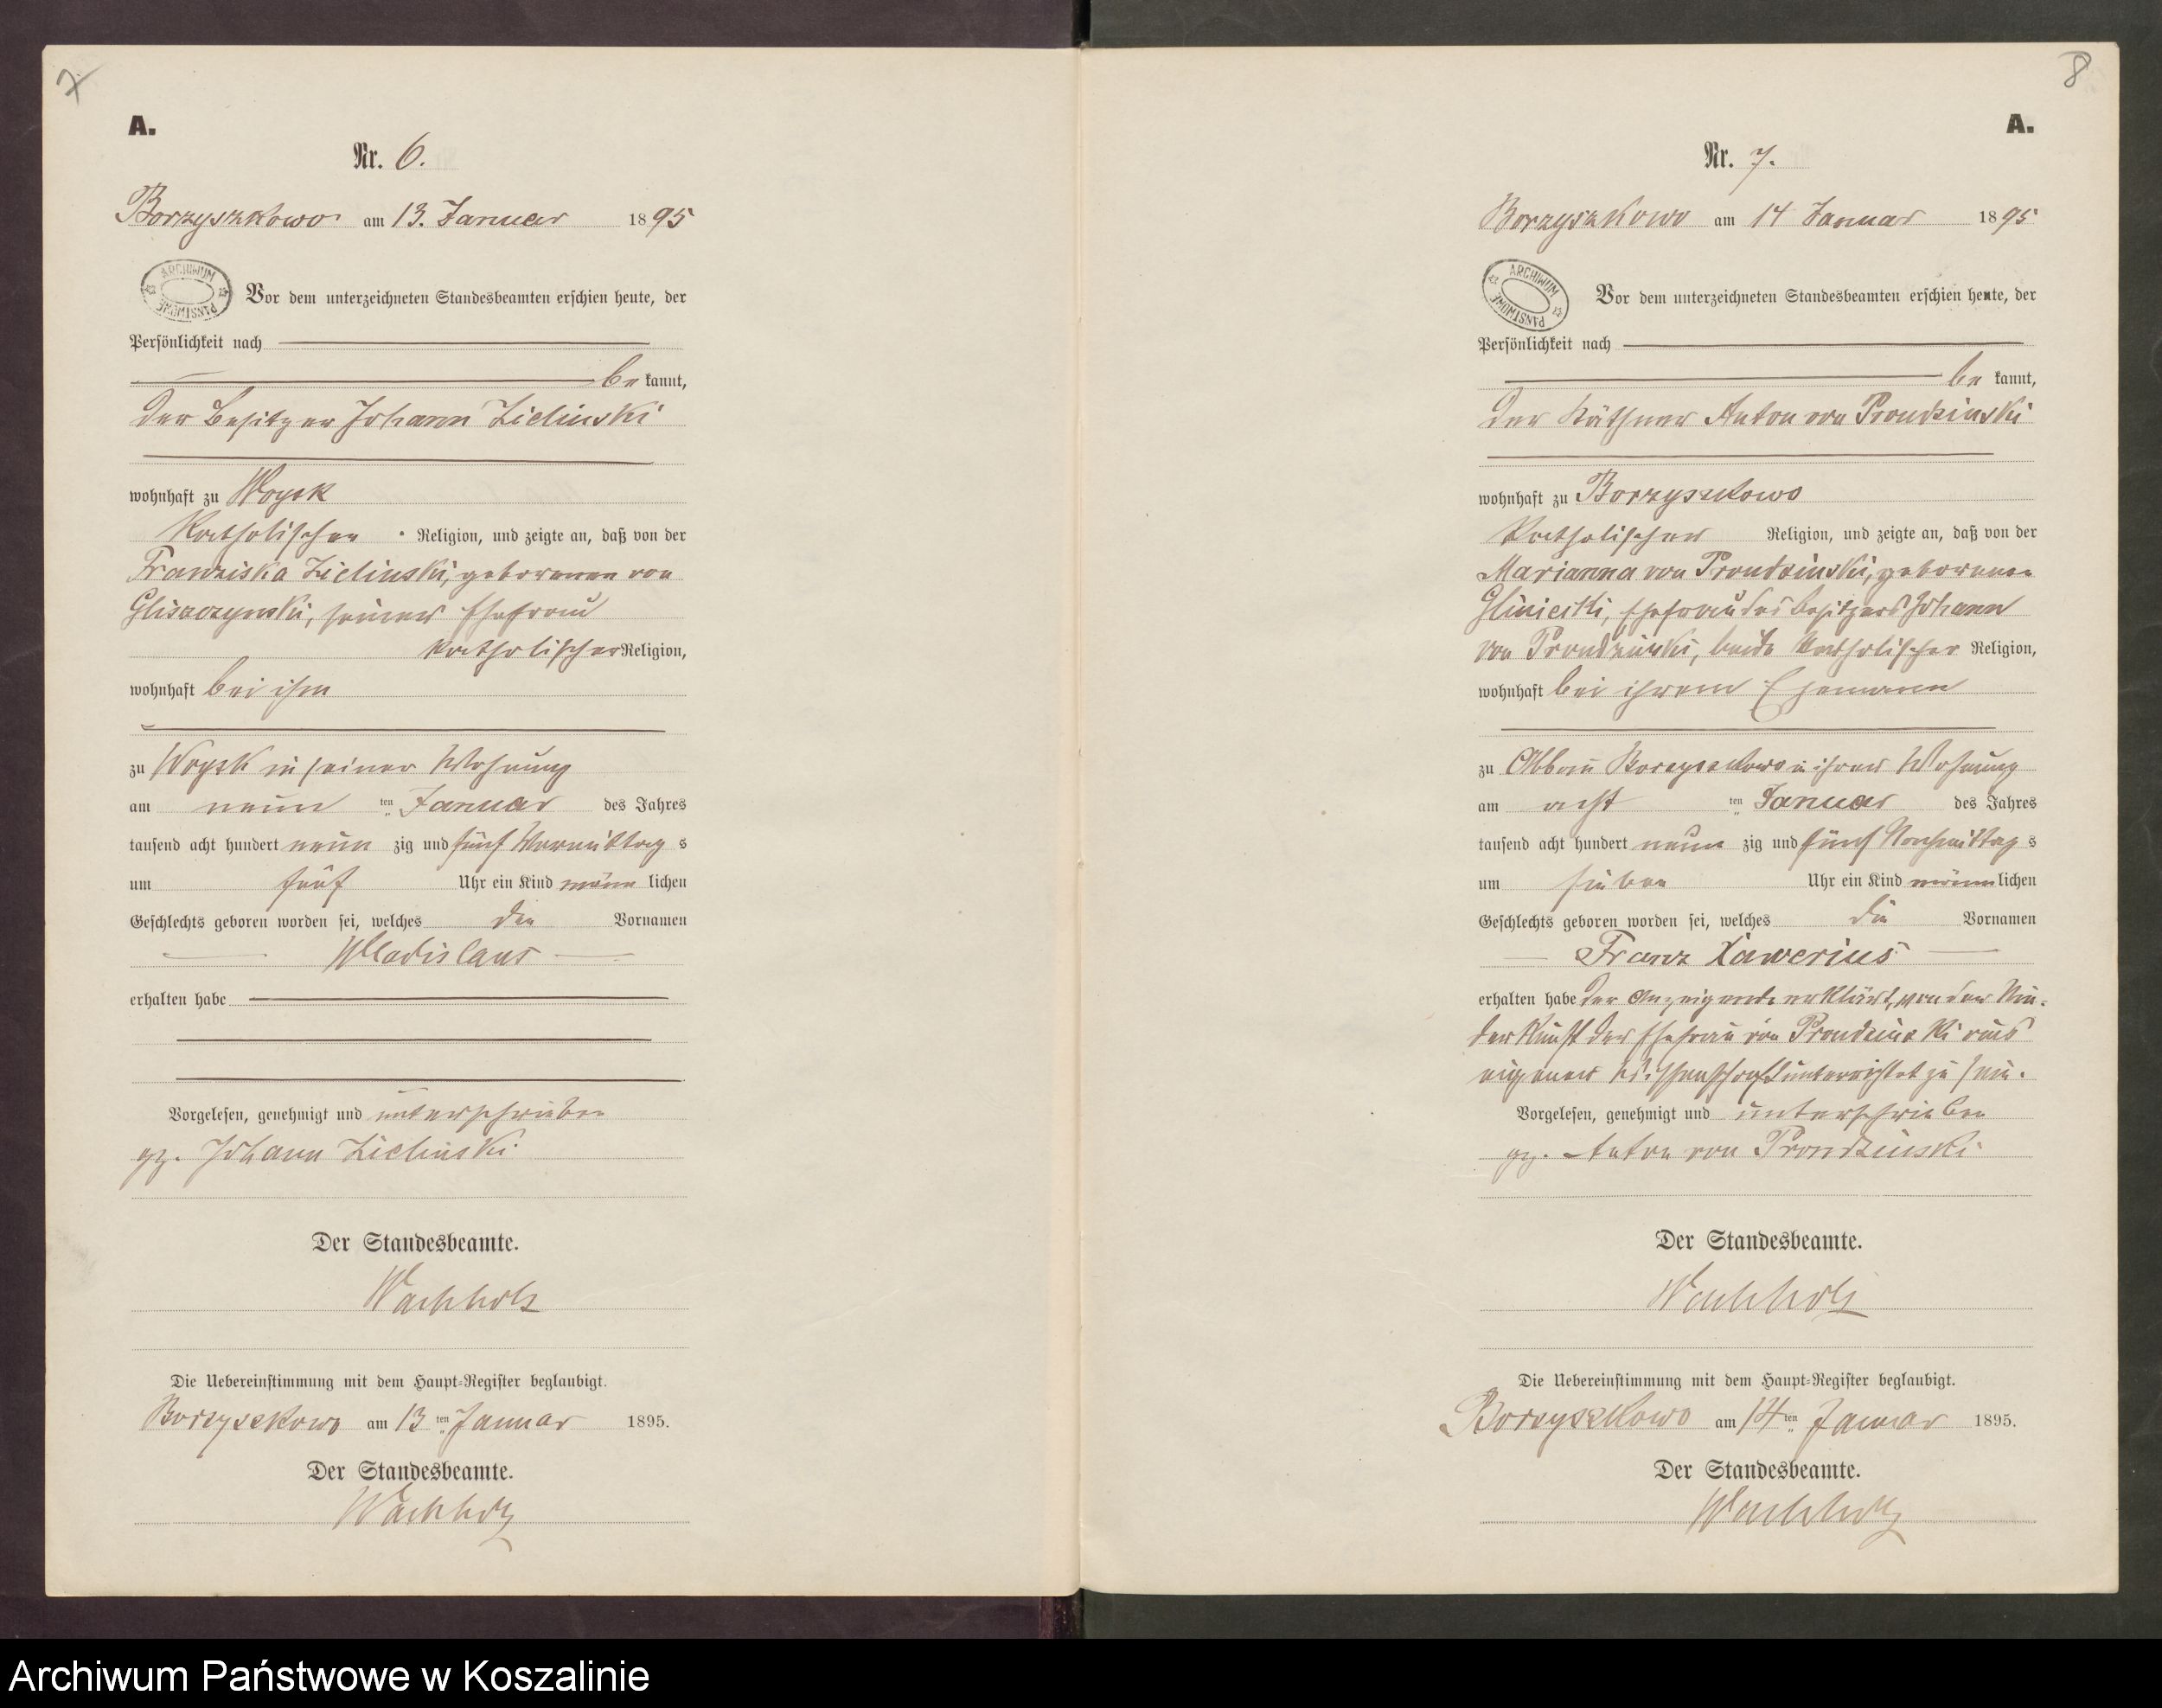 7
A.
Nr. 6.
Borzyszkowo am 13. Januar 1895
ARCHIWUM PAŃSTWOWE
Vor dem unterzeichneten Standesbeamten erschien heute, der
Persönlichkeit nach
be kannt,
der Besitzer Johann Zielinski
wohnhaft zu Woysk
katholischer Religion, und zeigte an, daß von der
Franziska Zielinski, geborenen von
Gliszczynski, seiner Ehefrau
katholischer Religion,
wohnhaft bei ihm
zu Woysk in seiner Wohnung
am neun ten Januar des Jahres
tausend acht hundert neun zig und fünf Vormittag s
um fünf Uhr ein Kind männ lichen
Geschlechts geboren worden sei, welches den Vornamen
Wladislaus
erhalten habe
Vorgelesen, genehmigt und unterschrieben
gz. Johann Zielinski
Der Standesbeamte.
Wachholz
Die Uebereinstimmung mit dem Haupt-Register beglaubigt.
Borzyszkowo am 13 ten Januar 1895.
Der Standesbeamte.
Wachholz
8
A.
Nr. 7.
Borzyszkowo am 14 Januar 1895
ARCHIWUM PAŃSTWOWE
Vor dem unterzeichneten Standesbeamten erschien heute, der
Persönlichkeit nach
be kannt,
der Käthner Anton von Prondzinski
wohnhaft zu Borzyszkowo
katholischer Religion, und zeigte an, daß von der
Marianna von Prondzinski, geborenen
Gliniecki, Ehefrau des Besitzers Johann
von Prondzinski, beide katholischer Religion,
wohnhaft bei ihrem Ehemann
zu Abbau Borzyszkowo in ihrer Wohnung
am acht ten Januar des Jahres
tausend acht hundert neun zig und fünf Nachmittag s
um sieben Uhr ein Kind männ lichen
Geschlechts geboren worden sei, welches die Vornamen
Franz Xawerius
erhalten habe Der Anzeigende erklärt, von der Nie-
derkunft der Ehefrau von Prondzinski aus
eigener Wissenschaft unterrichtet zu sein.
Vorgelesen, genehmigt und unterschrieben
gz. Anton von Prondzinski
Der Standesbeamte.
Wachholz
Die Uebereinstimmung mit dem Haupt-Register beglaubigt.
Borzyszkowo am 14 ten Januar 1895.
Der Standesbeamte.
Wachholz
Archiwum Państwowe w Koszalinie